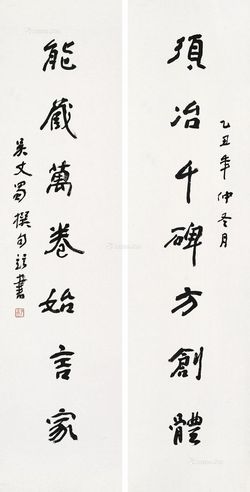 須冶千碑方創體
乙丑年仲冬月
能藏萬卷始言家
吴丈蜀撰句并書